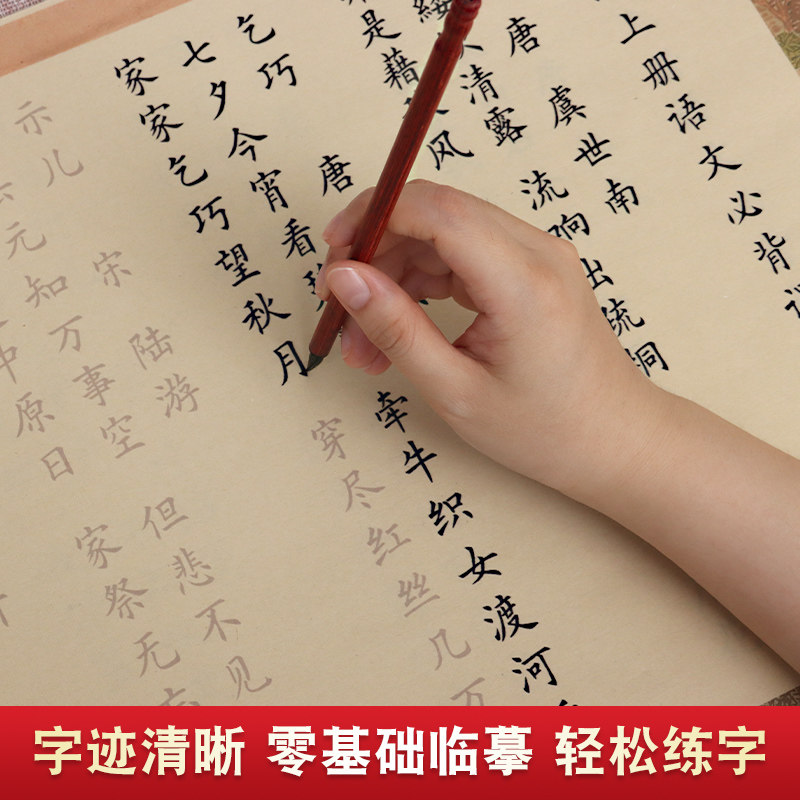 上册语文必背
唐 虞世南
清露 流响出疏桐
是藉 风
乞巧 唐
七夕今宵看 牵牛织女渡河
家家乞巧望秋月 穿尽红丝几万
示儿 宋 陆游
元知万事空 但悲不见
中原日 家祭无
字迹清晰 零基础临摹 轻松练字